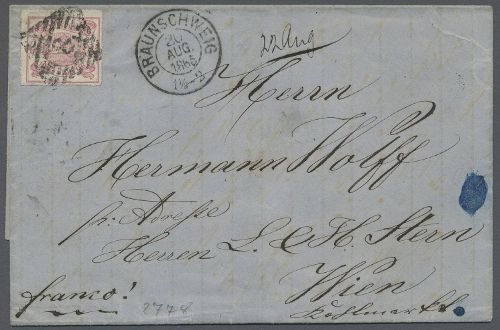 BRAUNSCHWEIG
20
AUG.
1865
1½-2
22 Aug
Herrn
Hermann Wolff
pr. Adresse
Herren L. & H. Stern
Wien
franco!
Kohlmarkt
2778